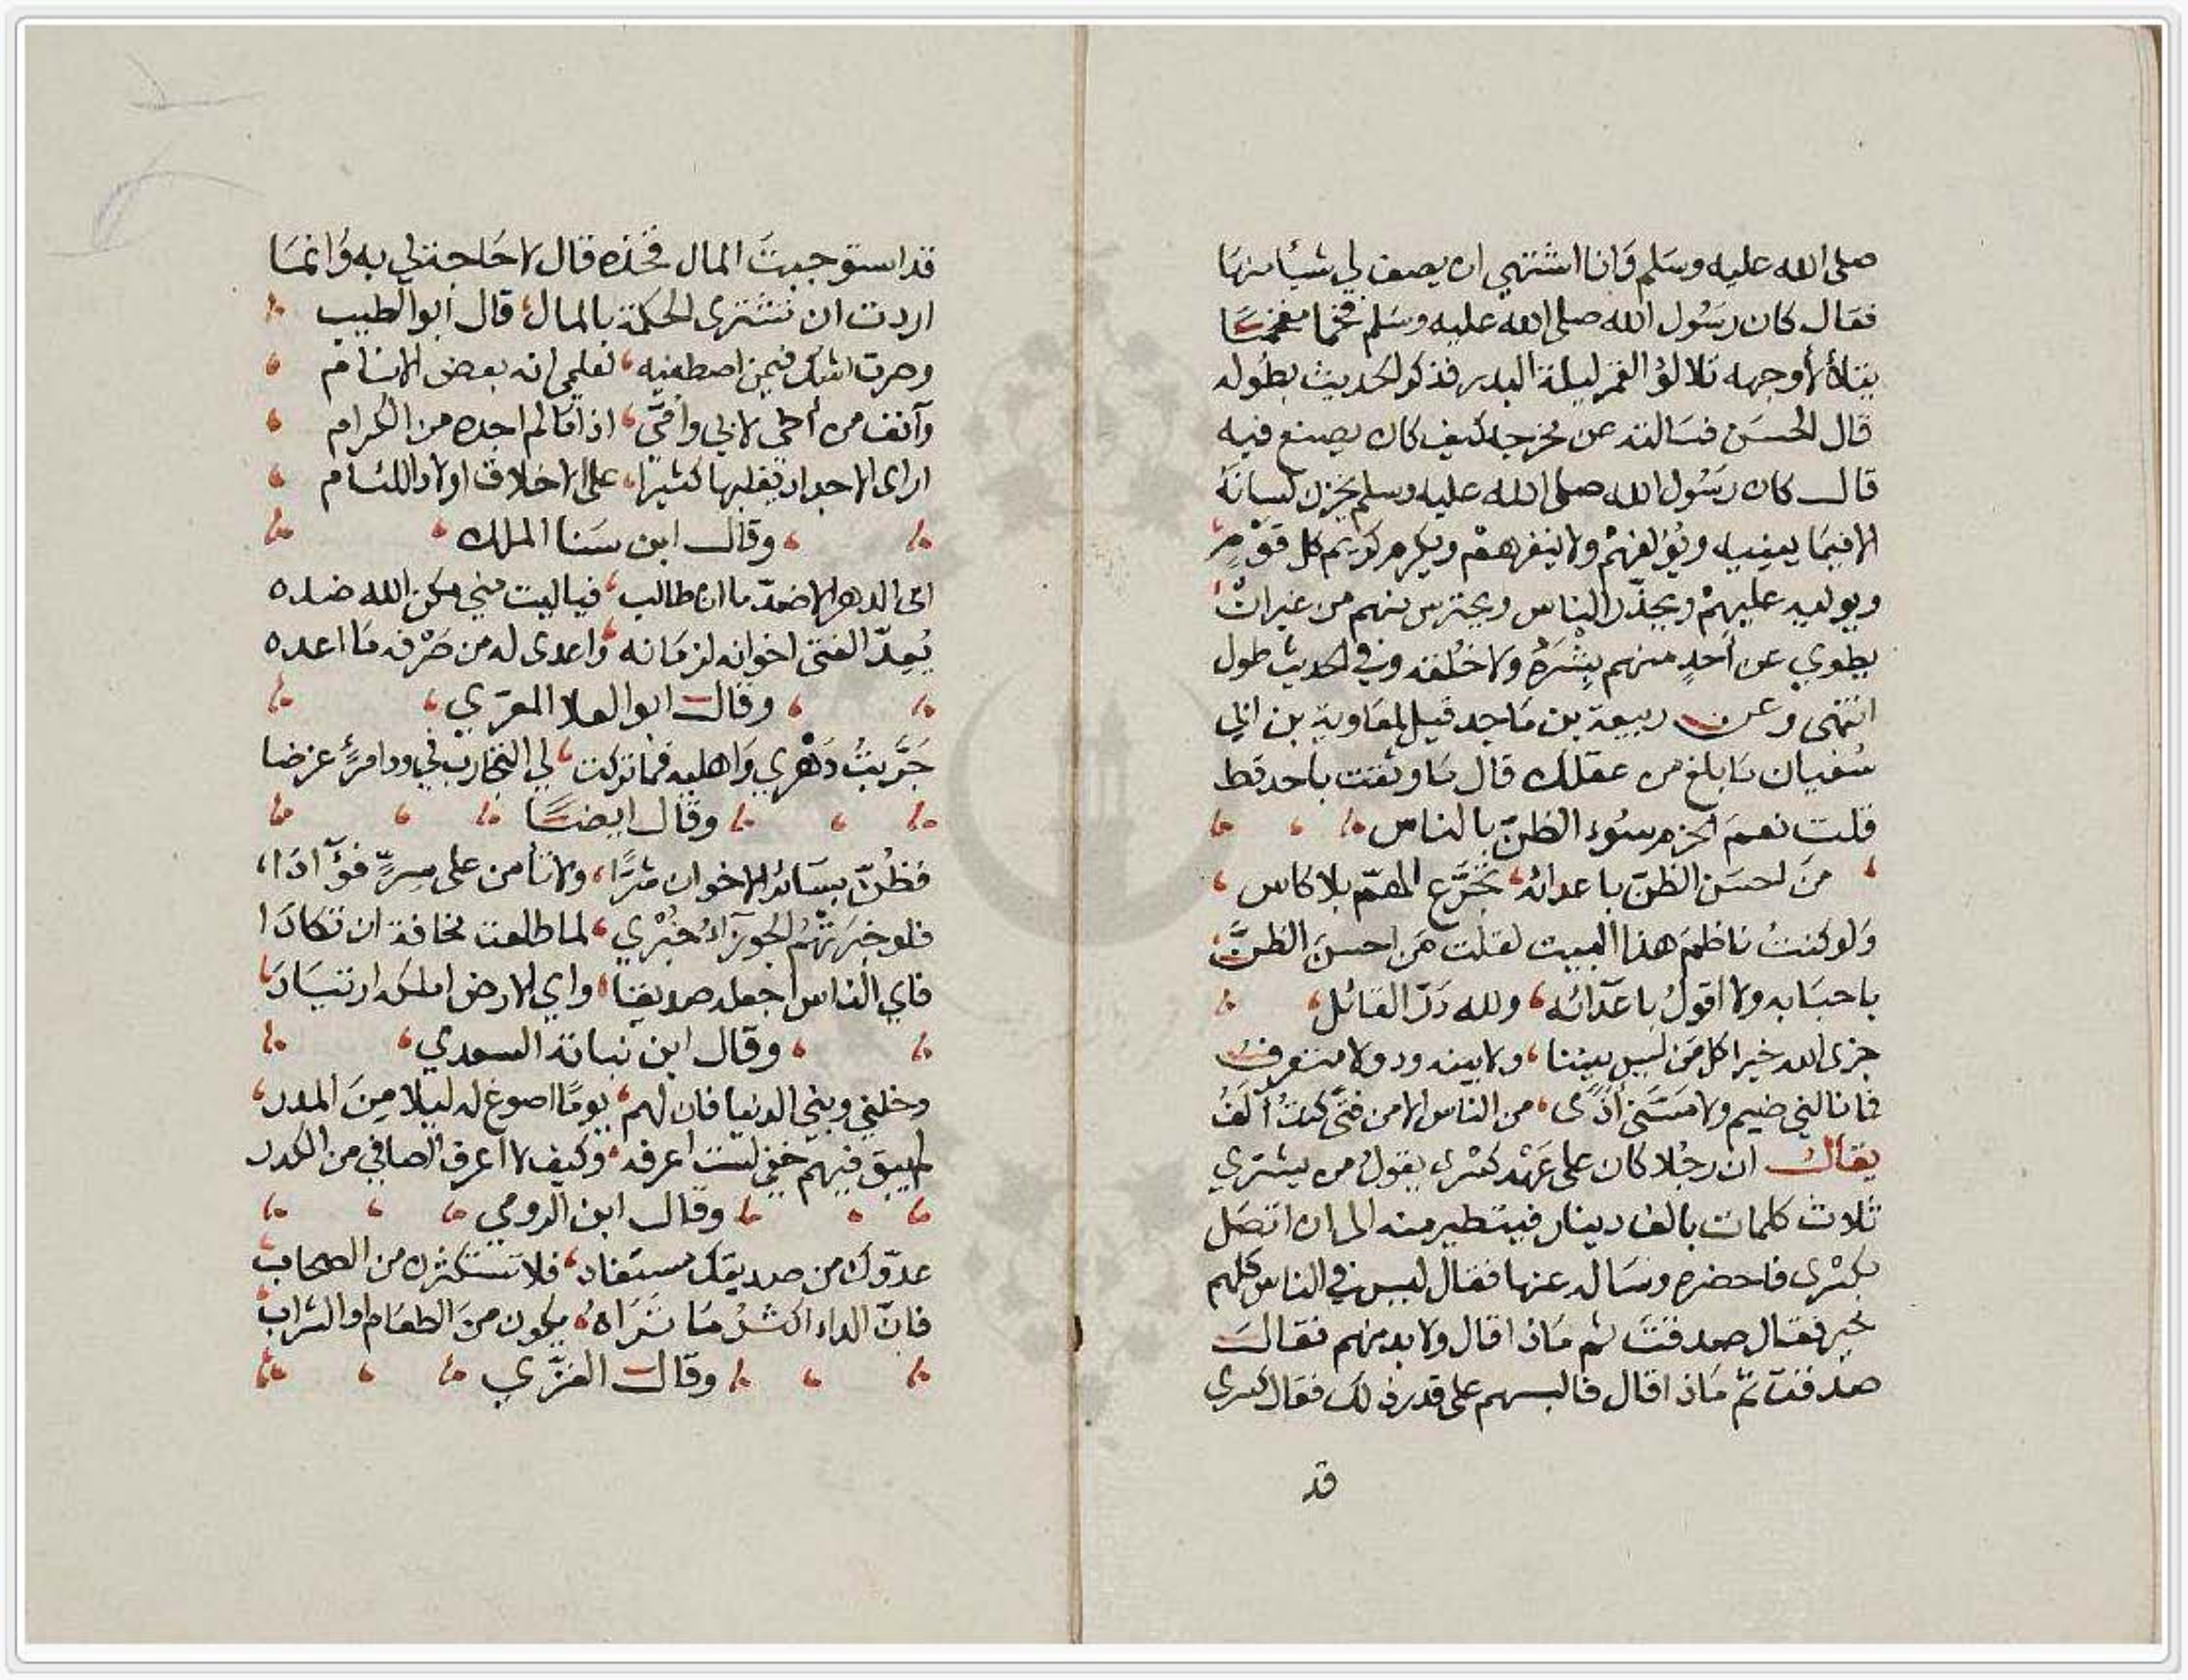 صلى الله عليه وسلم وانا اشتهي ان يصف لي شيأ منها
فقال كان رسول الله صلى الله عليه وسلم فخما مفخما
يتلألأ وجهه تلالؤ القمر ليلة البدر فذكر الحديث بطوله
قال الحسن فسالته عن مخرجه كيف كان يصنع فيه
قال كان رسول الله صلى الله عليه وسلم يخزن لسانه
الا فيما يعنيه ويؤلفهم ولا ينفرهم ويكرم كريم كل قوم
ويوليه عليهم ويحذر الناس ويحترس منهم من غير ان
يطوي عن أحد منهم بشره ولا خلقه وفي الحديث طول
انتهى وعن ربيعة بن ماجد قيل لمعاوية بن ابي
سفيان ما بلغ من عقلك قال ما وثقت باحد قط
قلت نعم الحزم سوء الظن بالناس
من احسن الظن باعدائه تجرع الهم بلا كاس
ولو كنت ناظم هذا البيت لقلت من احسن الظن
باحبابه ولا اقول باعدائه ولله در القائل
جزى الله خيرا كل من ليس بيننا ولا بينه ود ولا متعرف
فما نالني ضيم ولا مسني أذى من الناس الا من فتى كنت آلف
يقال ان رجلا كان على عهد كسرى يقول من يشتري
ثلاث كلمات بالف دينار فيتطير منه الى ان اتصل
بكسرى فاحضره وساله عنها فقال ليس في الناس كلهم
خير فقال صدقت ثم ماذا قال ولا بد منهم فقال
صدقت ثم ماذا قال فالبسهم على قدر ذلك فقال كسرى
قد
قد استوجبت المال فخذه قال لا حاجة لي به وانما
اردت ان تشترى الحكمة بالمال قال ابو الطيب
وصرت اشك فيمن اصطفيه لعلمي انه بعض الانام
وآنف من أخي لابي وأمي اذا ما لم اجده من الكرام
ارى الاجداد تغلبها كثيرا على الاخلاق اولاد اللئام
وقال ابن سنا الملك
ابى الدهر الا ضد ما ان طالب فياليت مني مكن الله ضده
يعد الفتى اخوانه لزمانه واعدى له من صرفه ما اعده
وقال ابو العلا المعري
جربت دهري واهليه فما تركت لي التجارب في ود امرئ غرضا
وقال ايضا
فظن بسائر الاخوان شرا ولا تأمن على سر فؤآدا
فلو خبرتهم الجوزآء خبري لما طلعت مخافة ان تكادا
فاي الناس اجعله صديقا واي الارض اسلكه ارتيادا
وقال ابن نباتة السعدي
وخلني وبني الدنيا فان لهم يوما اصوغ له ليلا من المدر
لم يبق فيهم خفي لست اعرفه وكيف لا اعرف الصافي من الكدر
وقال ابن الرومي
عدوك من صديقك مستفاد فلا تستكثرن من الصحاب
فان الداء اكثر ما تراه يكون من الطعام او الشراب
وقال الغزي